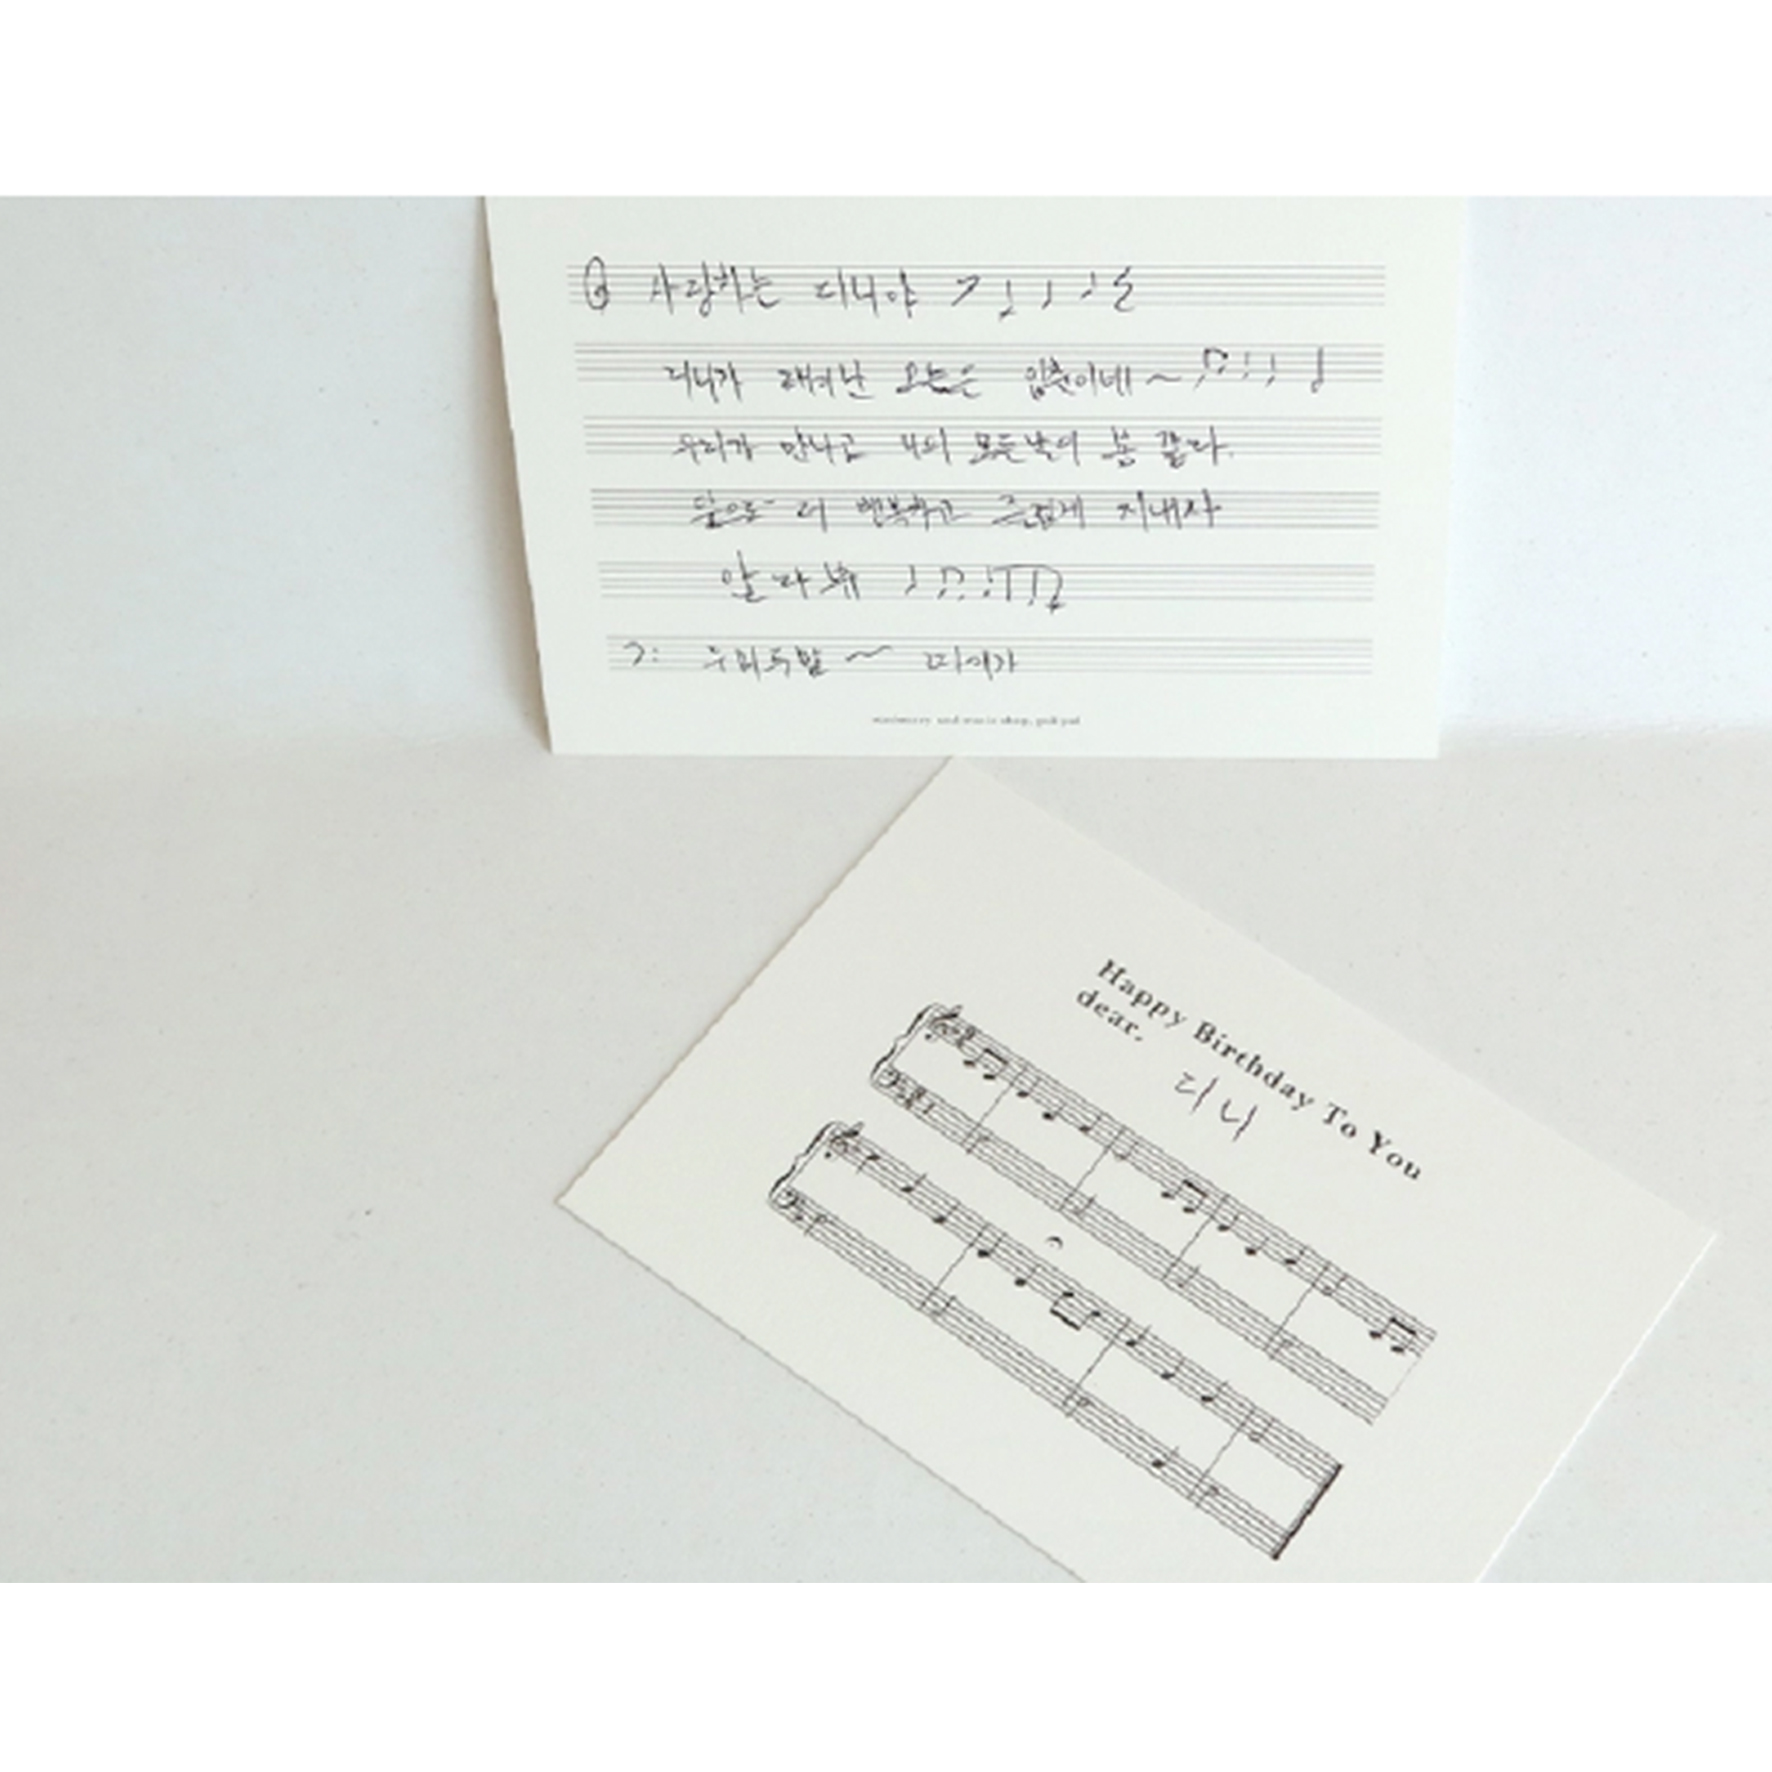 사랑하는 디니야
디니가 태어난 오늘은 입춘이네~
우리가 만나고 너의 모든날이 봄 같다.
앞으로 더 행복하고 즐겁게 지내자
알라뷰
우리두밤~
stationery and music shop,
Happy Birthday To You
dear.
디니